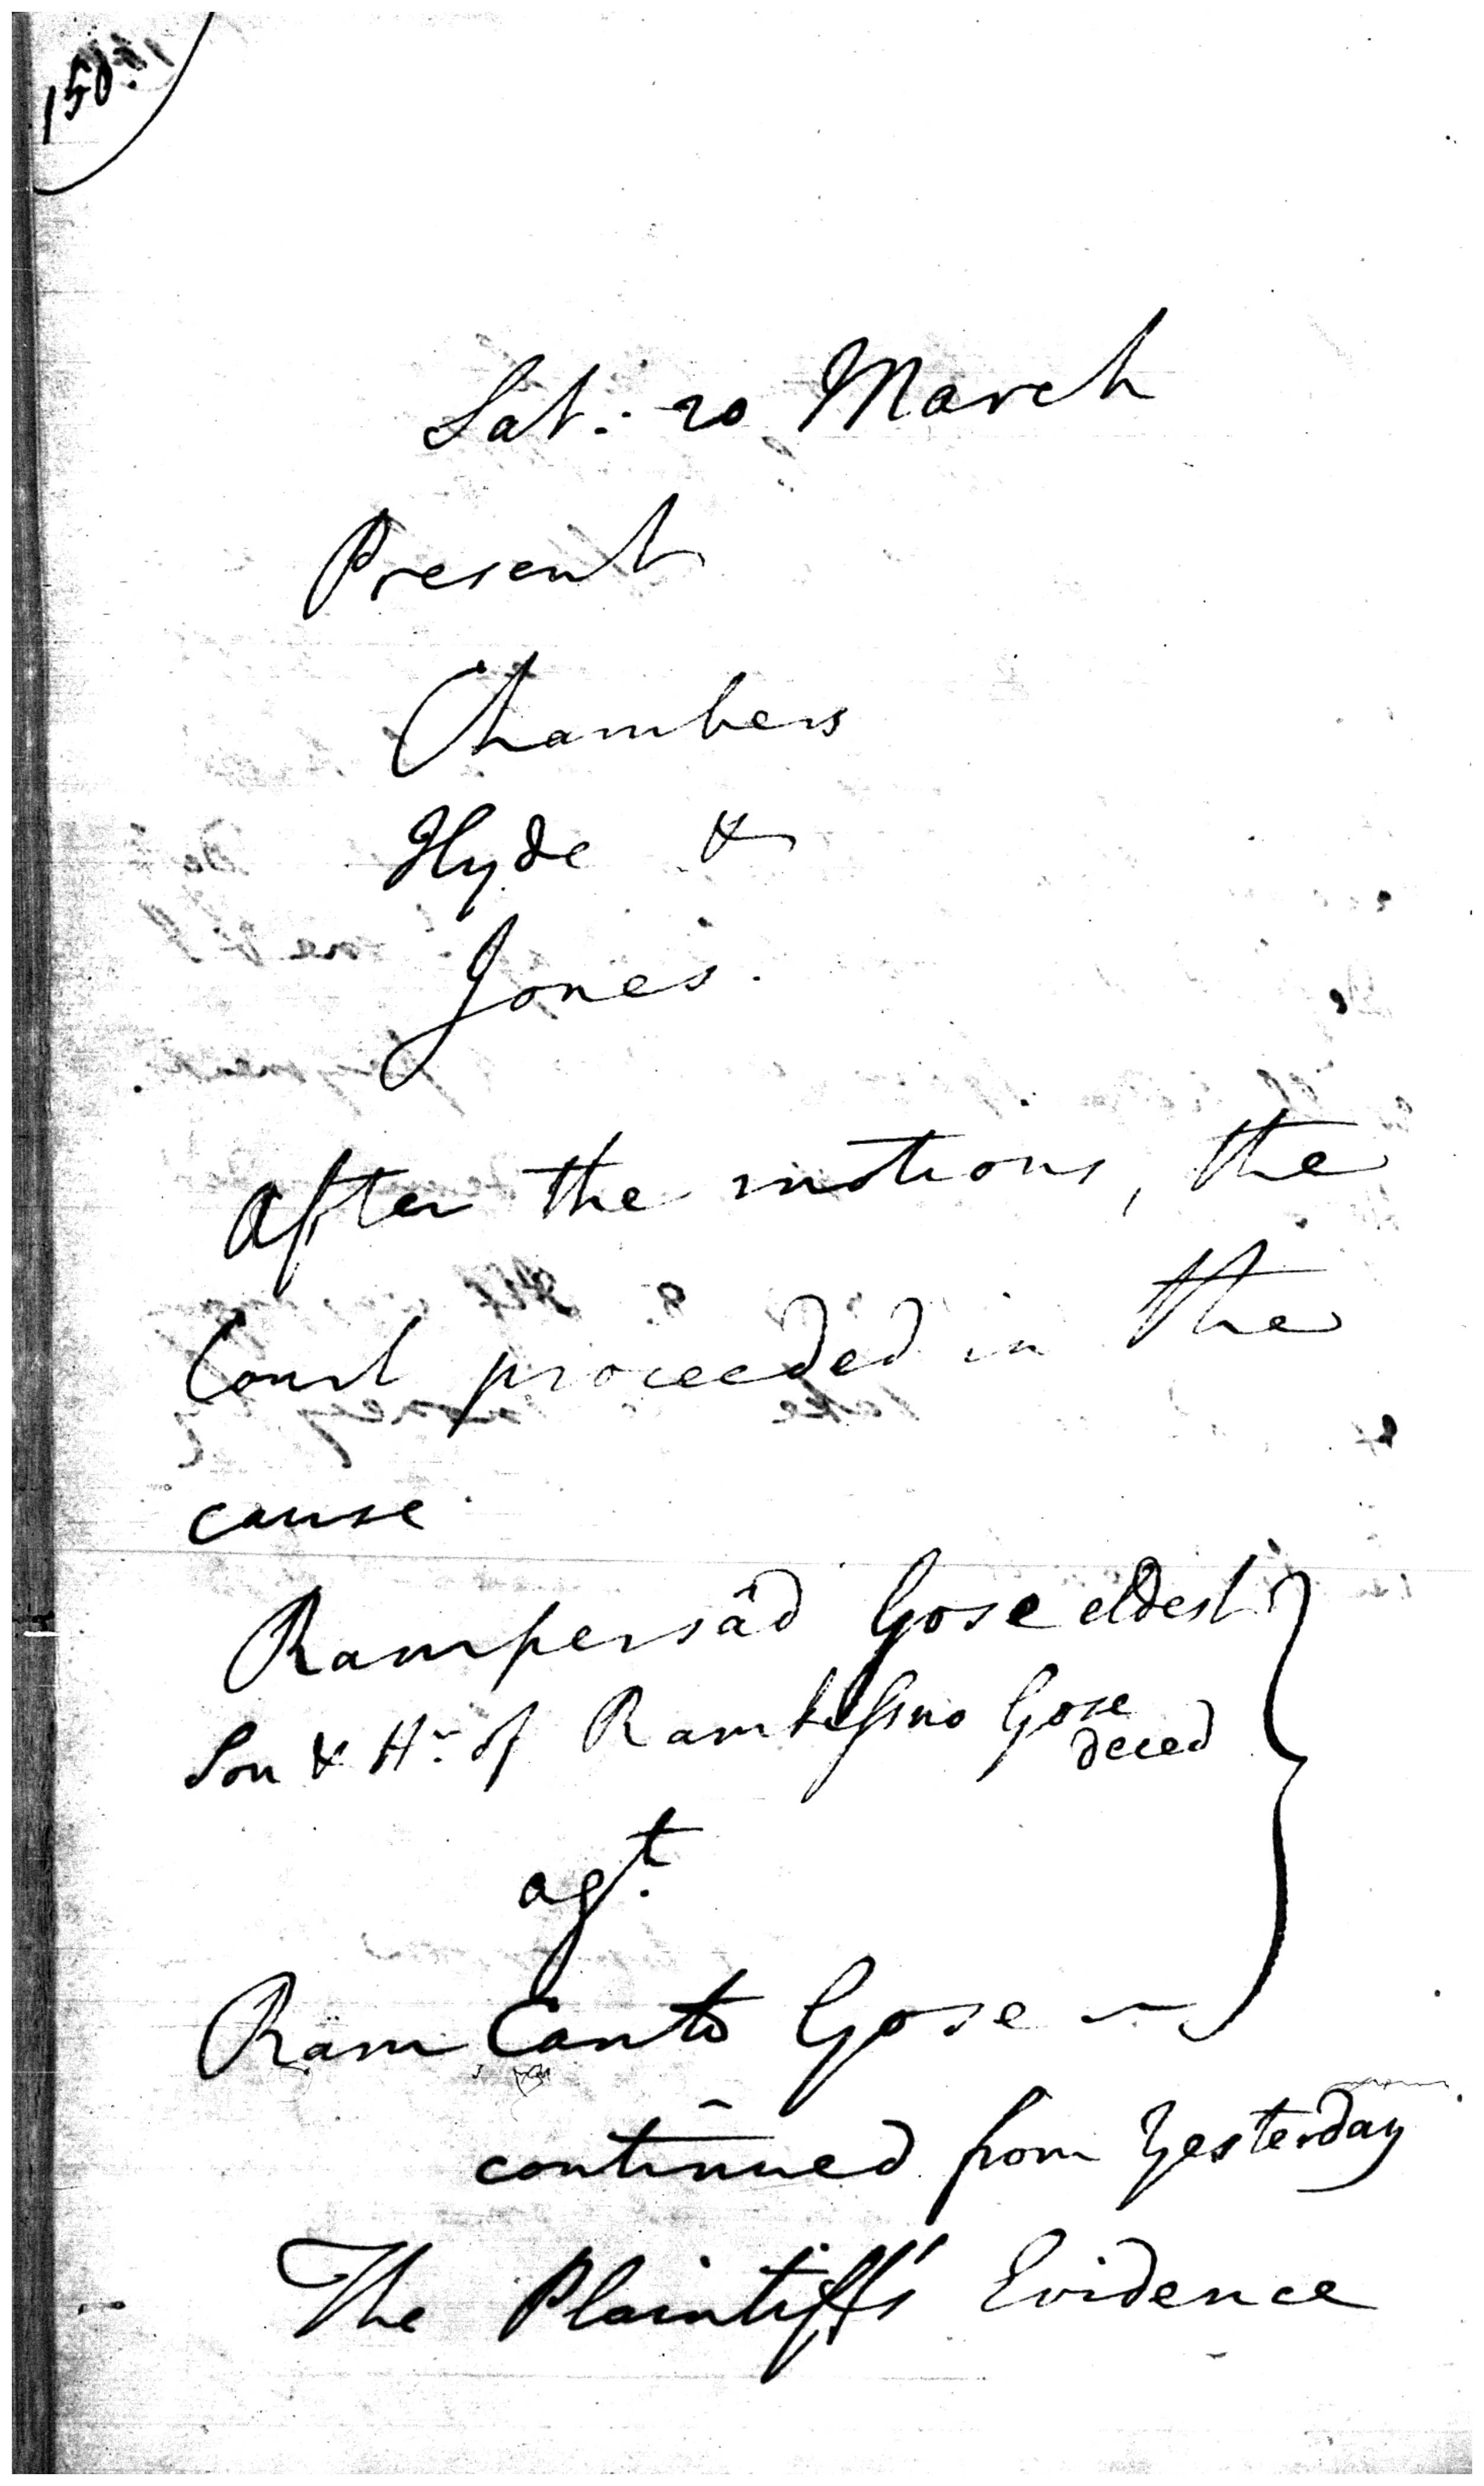 150.
Sat. 20 March
Present
Chambers
Hyde &
Jones.
After the motions, the
Court proceeded in the
cause
Rampersâd Gose eldest
Son & Hr. of Gose
deced
agt.
Ram Canto Gose
continued from Yesterday
The Plaintiff's Evidence